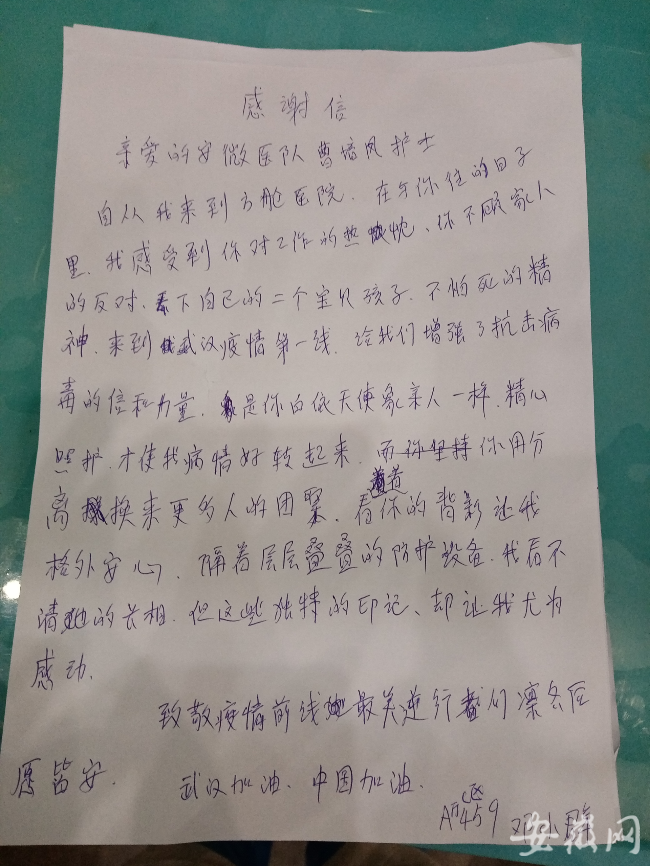 感谢信
亲爱的安微医队曹培凤护士
自从我来到方舱医院．在与你住的日子
里．我感受到你对工作的热忱、你不顾家人
的反对．丢下自己的二个宝贝孩子．不怕死的精
神．来到武汉疫情第一线．给我们增强了抗击病
毒的信和力量．是你白低天使象亲人一样．精心
照护．才使我病情好转起来．而你坚持你用分
离换来更多人的团聚．看你的背影让我
格外安心．隔着层层叠叠的防护设备．我看不
清她的长相．但这些独特的印记、却让我尤为
感动．
致敬疫情前线最美逆行者们凛冬后
愿皆安． 武汉加油．中国加油．
A前C区
459 邓
安徽网